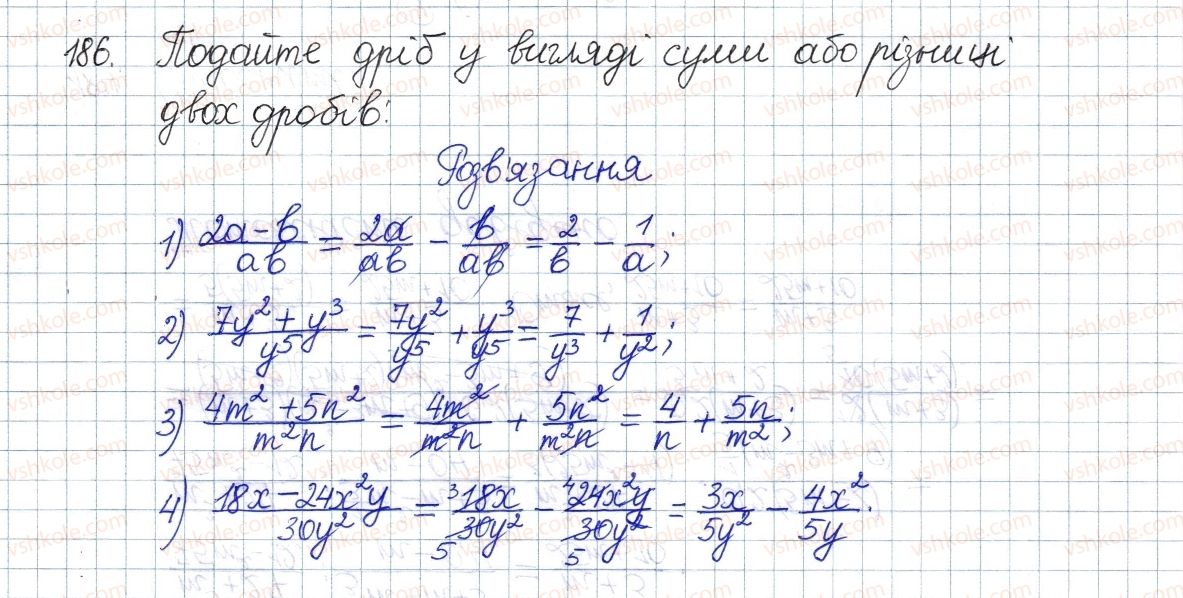 186. Подайте дріб у вигляді суми або різниці
двох дробів:
Розв'язання
1) (2a-b)/(ab) = 2a/(ab) - b/(ab) = 2/b - 1/a;
2) (7y²+y³)/y⁵ = 7y²/y⁵ + y³/y⁵ = 7/y³ + 1/y²;
3) (4m²+5n²)/(m²n) = 4m²/(m²n) + 5n²/(m²n) = 4/n + 5n/m²;
4) (18x-24x²y)/(30y²) = ³18x/(₅30y²) - ⁴24x²y/(₅30y²) = 3x/(5y²) - 4x²/(5y).